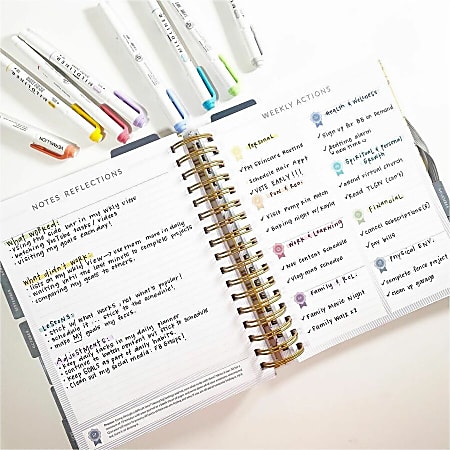 NOTES REFLECTIONS
What worked:
• using the side bar in my wkly view
• batching YouTube tasks/videos
• visiting my goals each day!
What didn't work:
• lists on my daily view → use them more in daily
• waiting until the last minute to complete projects
• comparing my goals to others.
LESSONS:
• stick w/ what works, not what's popular!
• schedule it + stick to the schedule!
• make my goals my focus.
Adjustments:
• keep daily tasks in my daily planner
• continue to batch content but stick w/ schedule
• keep GOALS as part of daily habits.
• Clean out my social media: FB Groups!
WEEKLY ACTIONS
Personal
✓ PM Skincare Routine
✓ Schedule Hair Appt
✓ VOTE EARLY!!!
Fun & Rec.
✓ Visit Pump Kin Patch
✓ Baking night w/ Kayla
Work & Learning
✓ Nov content schedule
✓ Vlog max schedule
Family & Rel.
✓ Family Movie Night
✓ Family Walk x2
Health & Wellness
✓ Sign up for BB on Demand
✓ Bedtime alarm
new time
Spiritual & Personal Growth
✓ Attend virtual church
✓ Read TLGN (cont)
Financial
✓ Cancel subscription(s)
✓ pay bills
Physical Env.
✓ complete fence project
✓ clean up garage